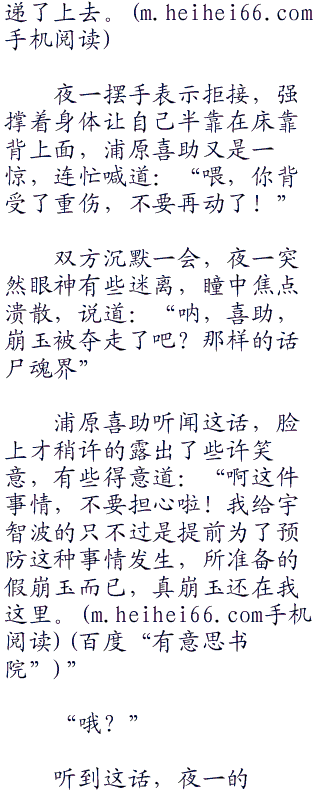 递了上去。(m.heihei66.com
手机阅读)
夜一摆手表示拒接，强
撑着身体让自己半靠在床靠
背上面，浦原喜助又是一
惊，连忙喊道：“喂，你背
受了重伤，不要再动了！”
双方沉默一会，夜一突
然眼神有些迷离，瞳中焦点
溃散，说道：“呐，喜助，
崩玉被夺走了吧？那样的话
尸魂界”
浦原喜助听闻这话，脸
上才稍许的露出了些许笑
意，有些得意道：“啊这件
事情，不要担心啦！我给宇
智波的只不过是提前为了预
防这种事情发生，所准备的
假崩玉而已，真崩玉还在我
这里。(m.heihei66.com手机
阅读)(百度“有意思书
院”)”
“哦？”
听到这话，夜一的